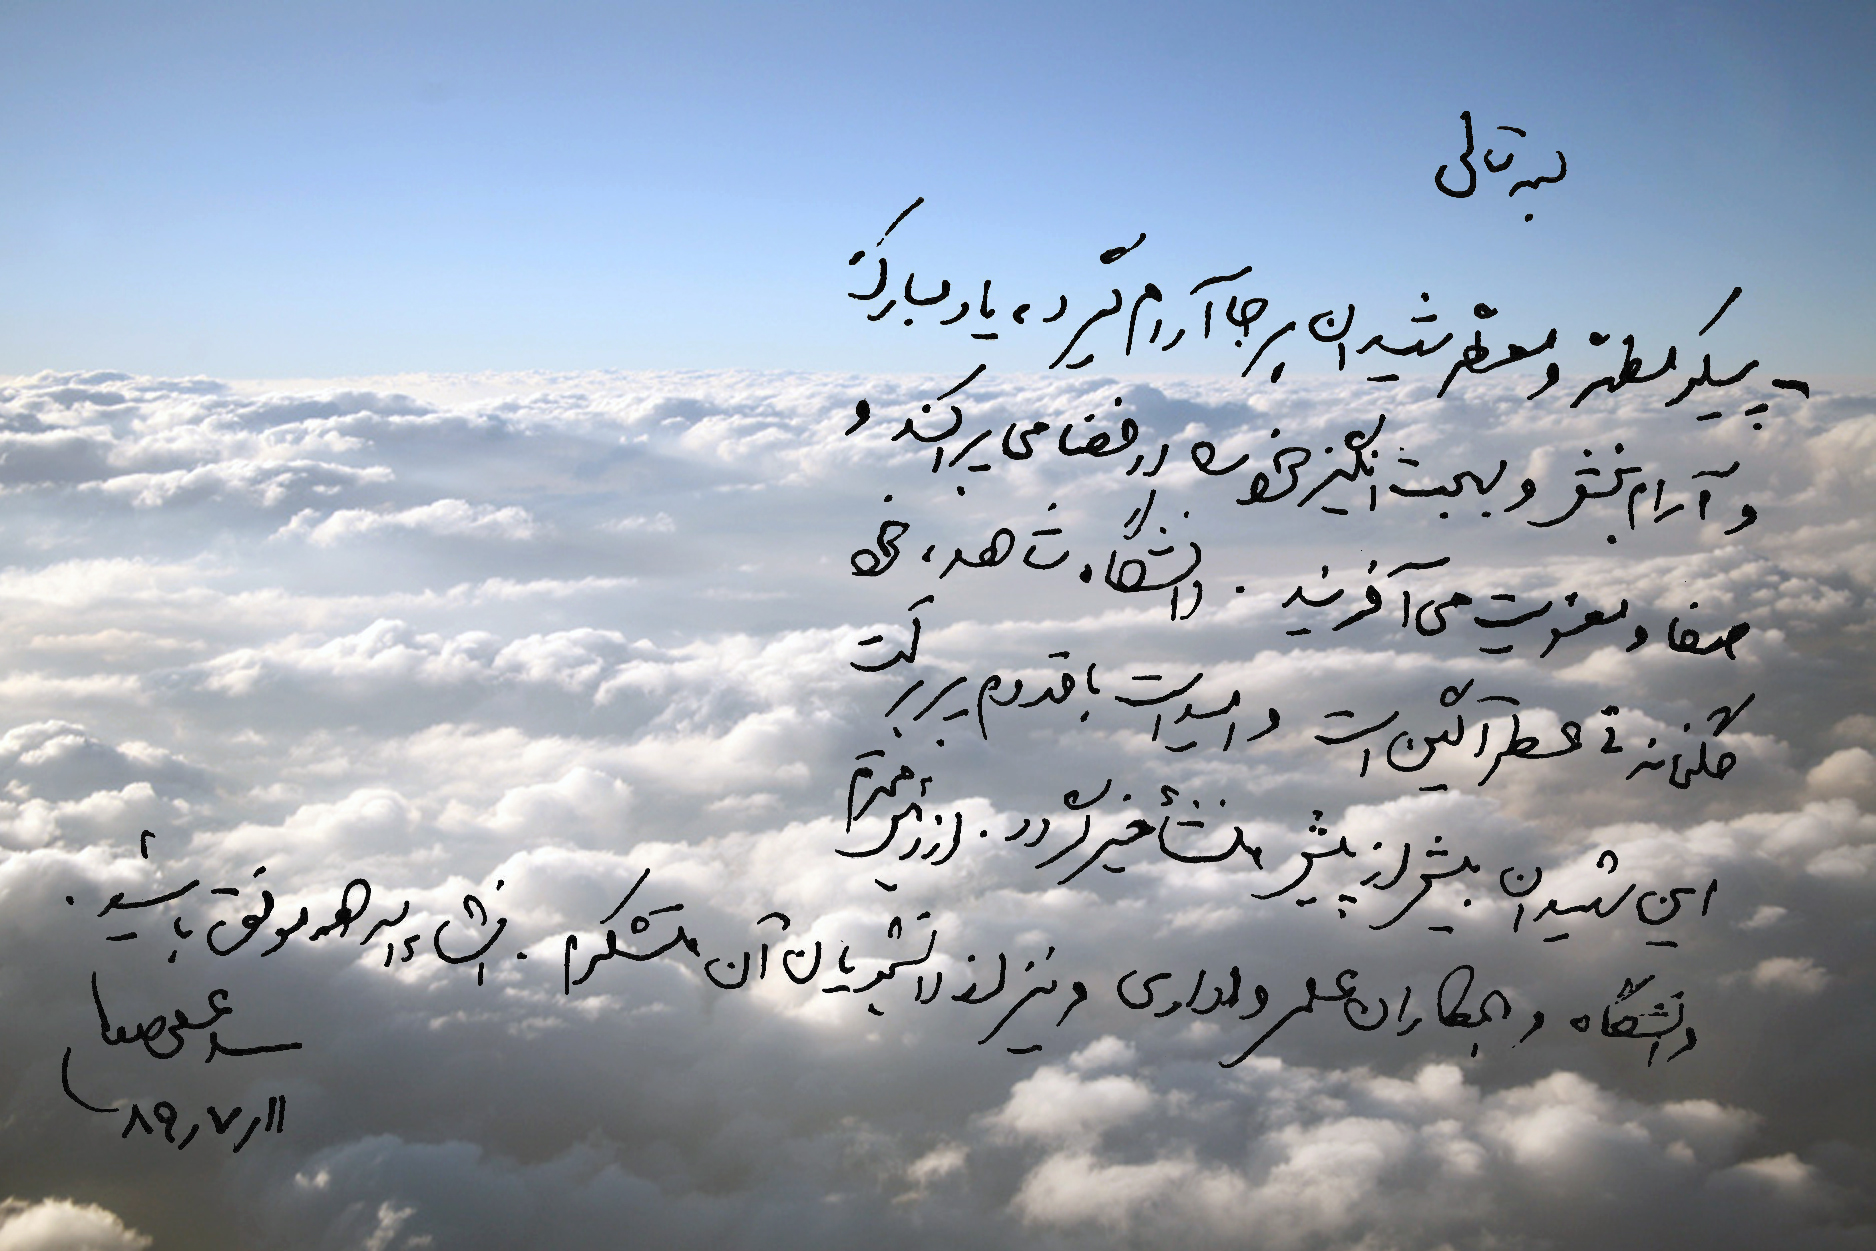 بسمه تعالی
- پیکر مطهّر و معظّم شهیدان هرجا آرام گیرد، یاد مبارک
و آرام بخش و بهجت انگیز خود را در فضا می پراکند و
صفا و معنویت می آفریند. دانشگاه شاهد، خود
خانه عطر آگین است و امید است با قدوم پر برکت
این شهیدان بیش از پیش منشأ خیر گردد. از رئیس محترم
دانشگاه و همکاران علمی و اداری و نیز از دانشجویان آن متشکرم. انشاءالله همه موفق باشید.
سید
۸۹٫۷٫۱۱